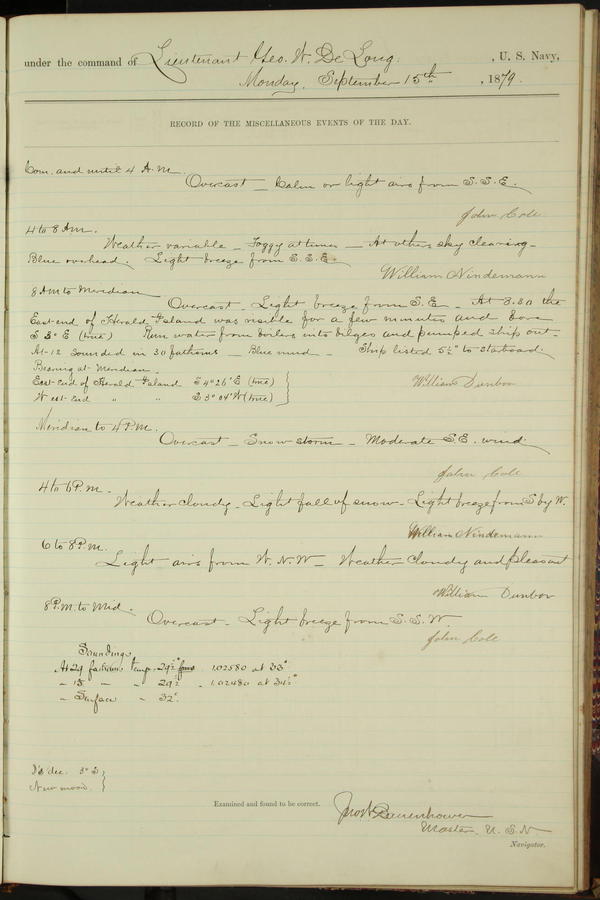 under the command of Lieutenant Geo. W. De Long. , U. S. Navy,
Monday, September 15th , 1879.
RECORD OF THE MISCELLANEOUS EVENTS OF THE DAY.
Com. and until 4 A.M.
Overcast — Calm or light airs from S.S.E.
John Cole
4 to 8 AM.
Weather variable — Foggy at times — At others sky clearing —
Blue overhead. Light breeze from S.S.E.
William Nindemann
8 AM to Meridian
Overcast — Light breeze from S.E — At 8.30 the
East end of Herald Island was visible for a few minutes and bore
(true) Run water from boilers into bilges and pumped ship out —
At 12 Sounded in 30 fathoms — Blue mud — Ship listed 5½° to starboard.
Bearing at Meridian —
East end of Herald Island S 4° 26' E (true)
West end " " S 3° 04' W (true)
William Dunbar
Meridian to 4 P.M.
Overcast — Snow storm — Moderate S.E. wind.
John Cole
4 to 6 P.M.
Weather cloudy — Light fall of snow — Light breeze from S by W.
William Nindemann
6 to 8 P.M.
Light airs from W.N.W — Weather cloudy and pleasant
William Dunbar
8 P.M. to Mid.
Overcast — Light breeze from S.S.W.
John Cole
Soundings
At 29 fathoms temp. 29½° 1.02580 at 33°
" 15 " " 29½ " 1.02480 at 34½°
" Surface " 32°.
dec. 3° S
New moon.
Examined and found to be correct.
Danenhower
Master, U.S.N
Navigator.